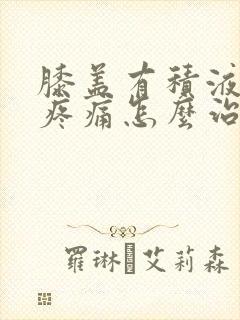 膝盖有積液
疼痛怎麼治
羅琳 艾莉森